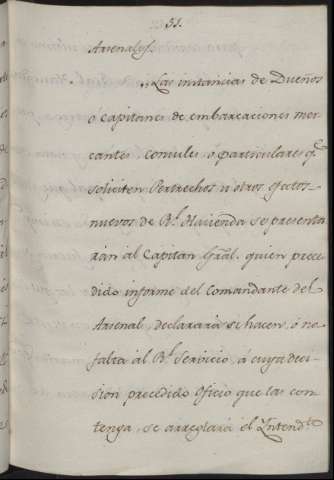 31.
Arsenales.
„Las instancias de Dueños
ó Capitanes de embarcaciones mer-
cantes, consules, ó particulares q.e
soliciten Pertrechos ú otros efectos
nuevos de R.l Hacienda se presenta
rán al Capitan Gral. quien prece
dido informe del Comandante del
Arsenal, declarará si hacen, ó no
falta al R.l Servicio, á cuya deci-
sion precedido Oficio que las con
tenga, se arreglará el Yntend.te